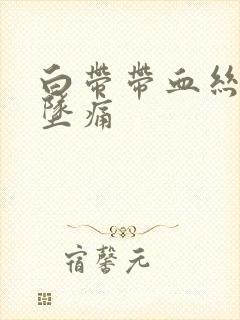 白带带血丝
坠痛
宿馨元